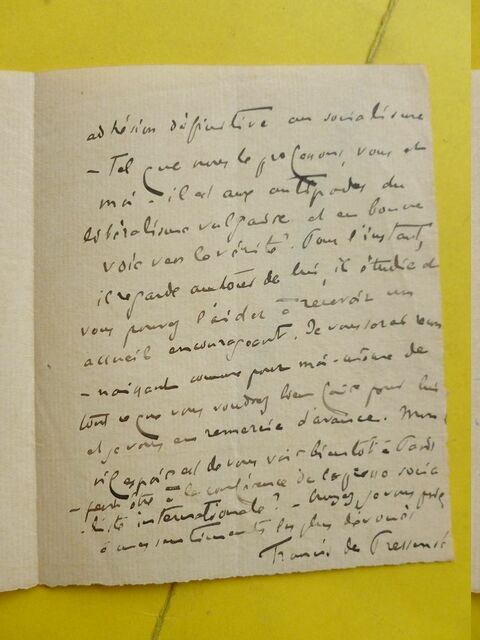 adhésion définitive au socialisme
- Tel que nous le professons, vous et
moi - il est aux antipodes du
libéralisme vulgaire et en bonne
voie vers la vérité. Pour l'instant,
il regarde autour de lui, il étudie et
vous pouvez l'aider à recevoir un
accueil encourageant. Je vous serai recon
-naissant comme pour moi-même de
tout ce que vous voudrez bien faire pour lui
et je vous en remercie d'avance. Mon
espoir est de vous voir bientôt à Paris
- peut être à la conférence de la presse socia
liste internationale? - Croyez, je vous prie,
à mes sentiments les plus dévoués
Francis de Pressensé